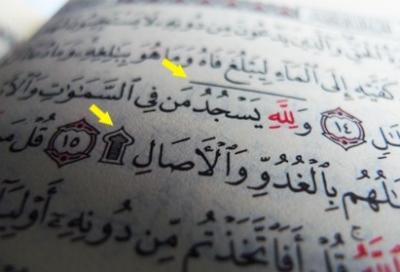 كَفَّيْهِ إِلَى ٱلْمَآءِ لِيَبْلُغَ فَاهُ وَمَا هُوَ بِبَٰلِغِهِۦ
ـَٰلٍ ١٤ وَلِلَّهِ يَسْجُدُ مَن فِى ٱلسَّمَٰوَٰتِ وَٱلْأَ
ـَٰلُهُم بِٱلْغُدُوِّ وَٱلْأَصَالِ ۩ ١٥ قُلْ مَن
ٱللَّهُ قُلْ أَفَٱتَّخَذْتُم مِّن دُونِهِۦٓ أَوْلِيَا